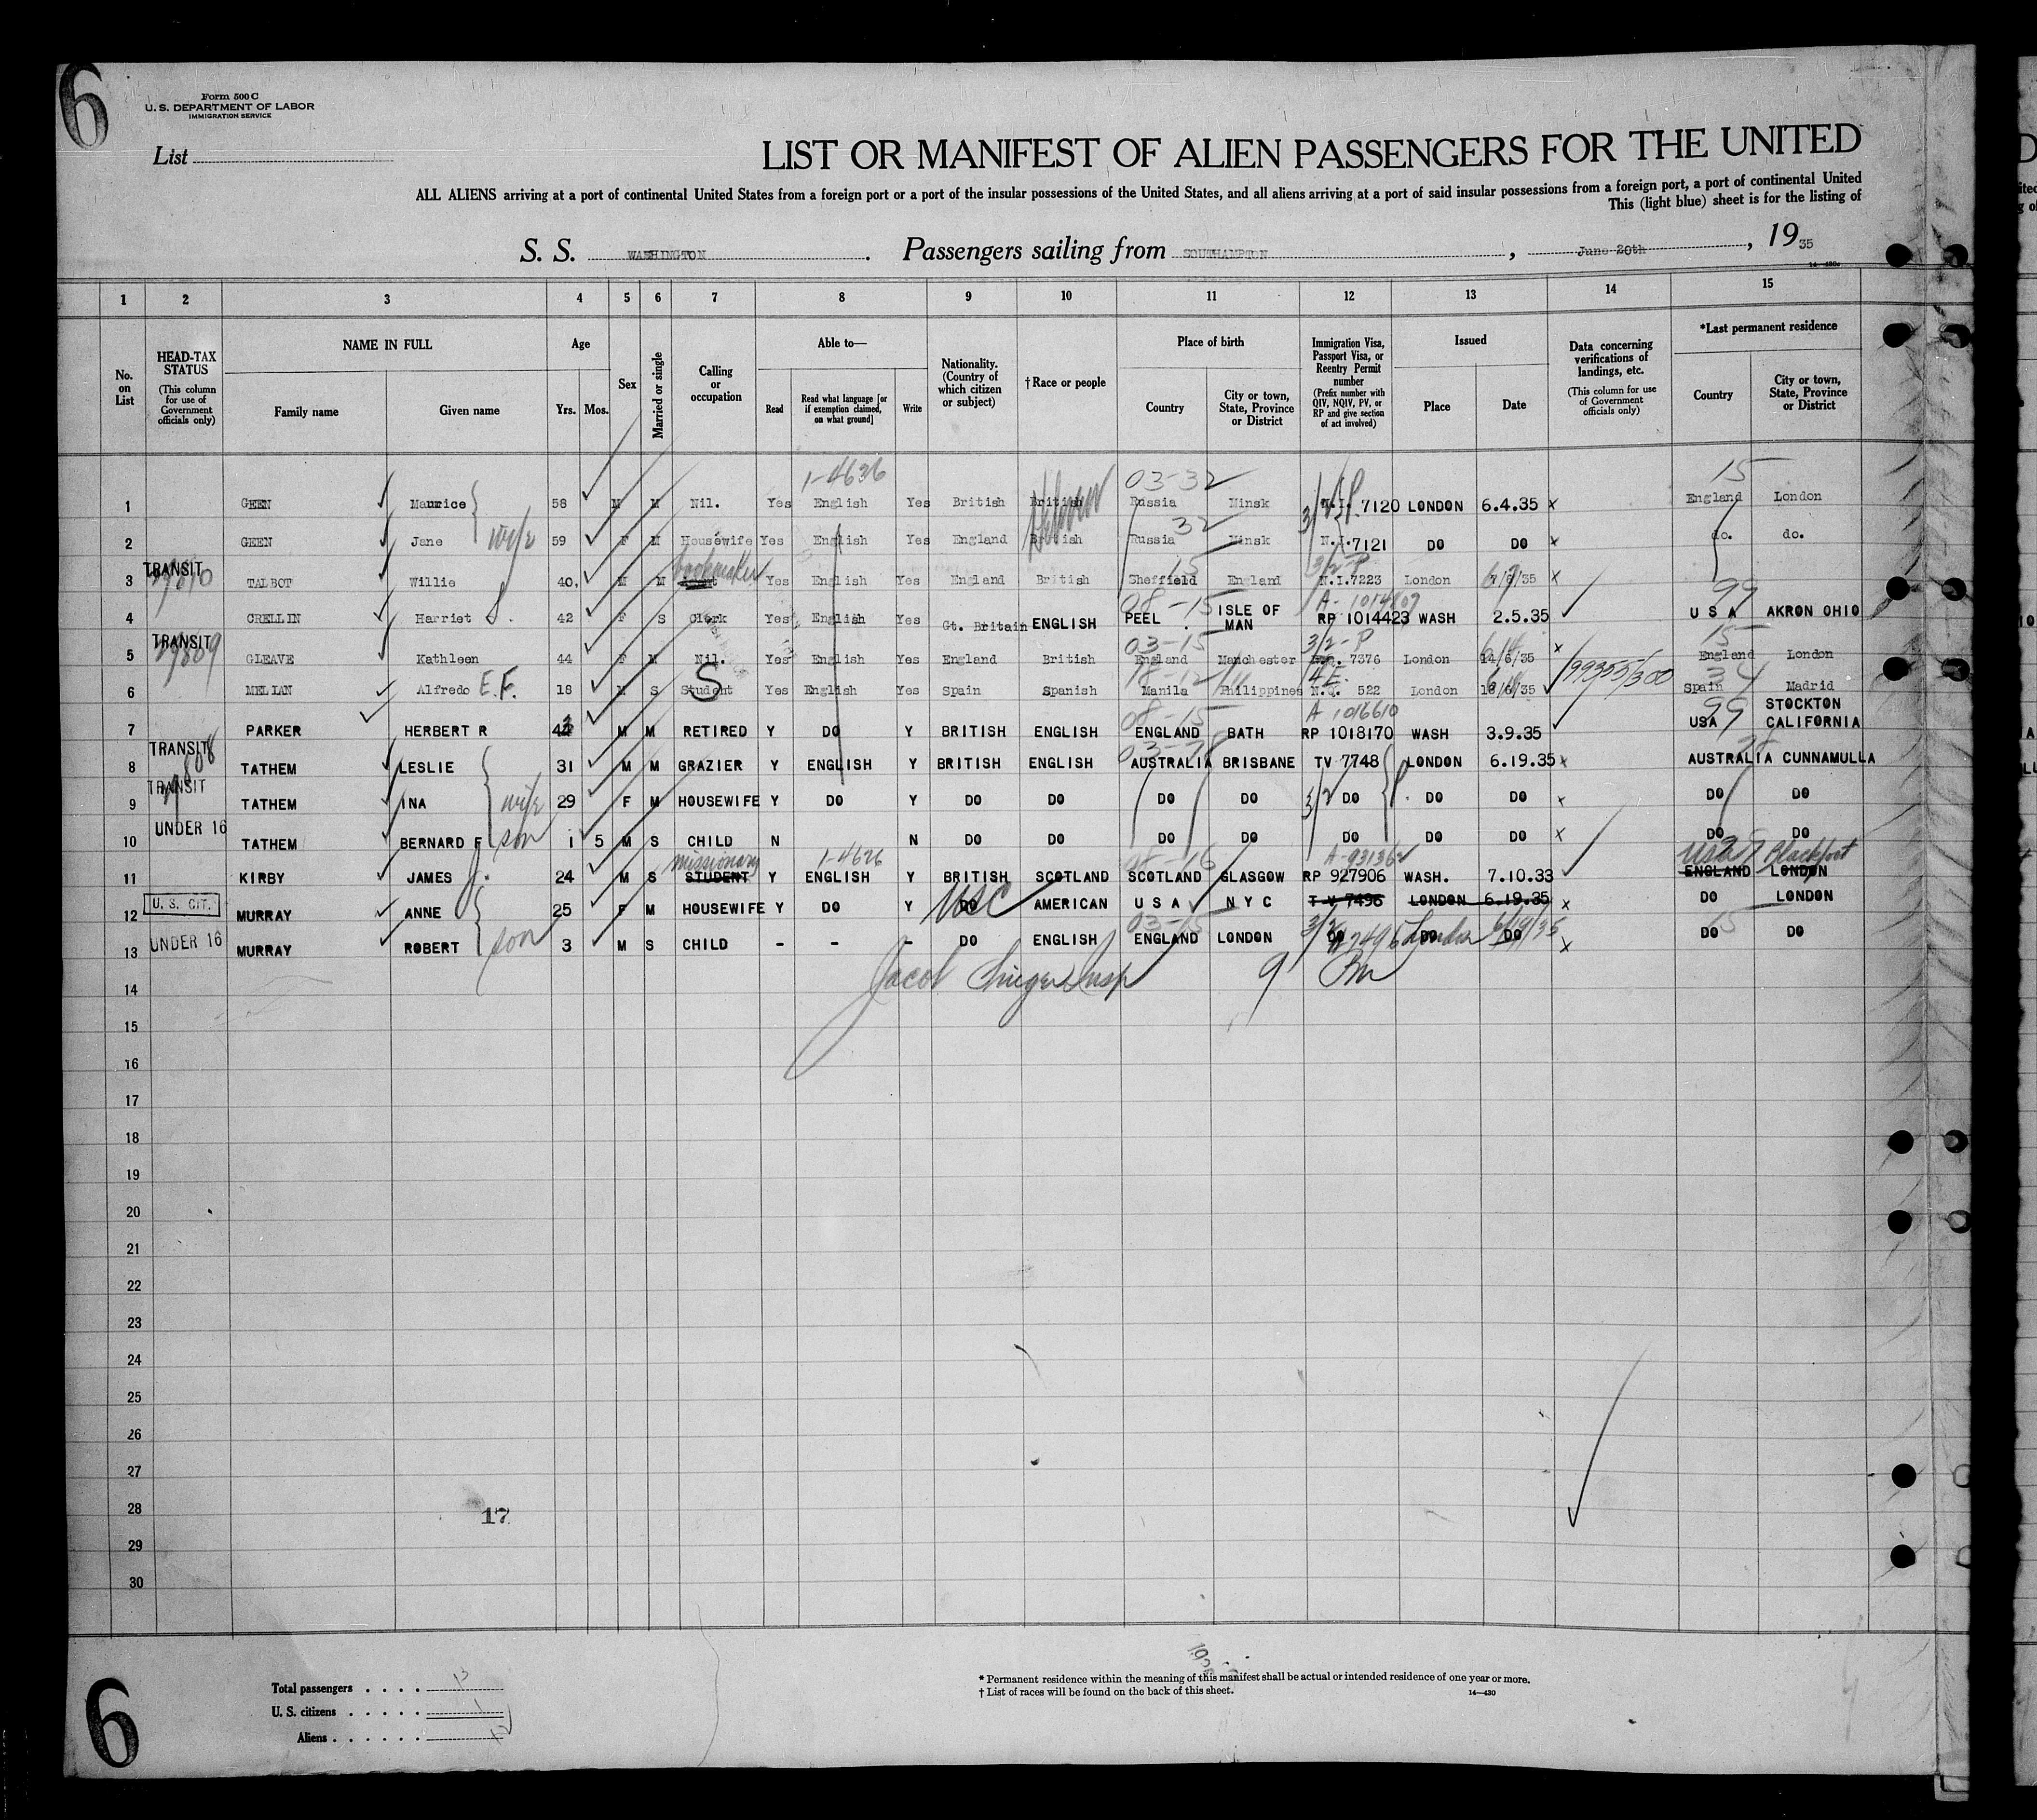 6
Form 500 C
U. S. DEPARTMENT OF LABOR
IMMIGRATION SERVICE
List
LIST OR MANIFEST OF ALIEN PASSENGERS FOR THE UNITED
ALL ALIENS arriving at a port of continental United States from a foreign port or a port of the insular possessions of the United States, and all aliens arriving at a port of said insular possessions from a foreign port, a port of continental United
This (light blue) sheet is for the listing of
S. S. WASHINGTON. Passengers sailing from SOUTHAMPTON, June 20th, 1935
14—430
1 2 3 4 5 6 7 8 9 10 11 12 13 14 15
No. on List
HEAD-TAX STATUS (This column for use of Government officials only)
NAME IN FULL
Family name
Given name
Age
Yrs. Mos.
Sex
Married or single
Calling or occupation
Able to—
Read
Read what language [or if exemption claimed, on what ground]
Write
Nationality. (Country of which citizen or subject)
† Race or people
Place of birth
Country
City or town, State, Province or District
Immigration Visa, Passport Visa, or Reentry Permit number (Prefix number with QIV, NQIV, PV, or RP and give section of act involved)
Issued
Place
Date
Data concerning verifications of landings, etc. (This column for use of Government officials only)
*Last permanent residence
Country
City or town, State, Province or District
1-4636 03-32 15
1 GEEN Maurice 58 M M Nil. Yes English Yes British British Hebrew Russia Minsk N.I. 7120 LONDON 6.4.35 x England London
2 GEEN Jane wife 59 F M Housewife Yes English Yes England British Russia 32 Minsk N.I.7121 DO DO x do. do.
TRANSIT bookmaker 15 3/2-P
3 TALBOT Willie 40 M M Yes English Yes England British Sheffield England N.I.7223 London 7/6/35 x
08-15 A-1014807 99
4 CRELLIN Harriet S. 42 F S Clerk Yes English Yes Gt. Britain ENGLISH PEEL . ISLE OF MAN RP 1014423 WASH 2.5.35 U S A AKRON OHIO
TRANSIT 29889 03-15 3/2-P 15
5 GLEAVE Kathleen 44 F M Nil. Yes English Yes England British England Manchester 7376 London 14/6/35 x England London
S 78-12 4E. 99355/300 34
6 MELIAN Alfredo E.F. 18 M S Student Yes English Yes Spain Spanish Manila Philippines N.Q. 522 London 18/6/35 Spain Madrid
08-15 A 1016610 99
7 PARKER HERBERT R 42 M M RETIRED Y DO Y BRITISH ENGLISH ENGLAND BATH RP 1018170 WASH 3.9.35 USA STOCKTON CALIFORNIA
TRANSIT 03-78
8 TATHEM LESLIE 31 M M GRAZIER Y ENGLISH Y BRITISH ENGLISH AUSTRALIA BRISBANE TV 7748 LONDON 6.19.35 x AUSTRALIA CUNNAMULLA
TRANSIT
9 TATHEM INA wife 29 F M HOUSEWIFE Y DO Y DO DO DO DO 3/2 DO P. DO DO x DO DO
UNDER 16
10 TATHEM BERNARD F son 1 5 M S CHILD N N DO DO DO DO DO DO DO x DO DO
missionary 1-4626 A-931362 USA Blackfoot
11 KIRBY JAMES J. 24 M S STUDENT Y ENGLISH Y BRITISH SCOTLAND SCOTLAND GLASGOW RP 927906 WASH. 7.10.33 ENGLAND LONDON
U. S. CIT.
12 MURRAY ANNE 25 F M HOUSEWIFE Y DO Y DO USC AMERICAN U S A N Y C T V 7496 LONDON 6.19.35 x DO LONDON
UNDER 16 03-15 3/2 15
13 MURRAY ROBERT son 3 M S CHILD - - - DO ENGLISH ENGLAND LONDON DO 7496 DO London DO 6/19/35 x DO DO
14 Jacob Insp 9
15
16
17
18
19
20
21
22
23
24
25
26
27
28 17
29
30
Total passengers . . . . 13
U. S. citizens . . . . . 1
Aliens . . . . . . 12
* Permanent residence within the meaning of this manifest shall be actual or intended residence of one year or more.
† List of races will be found on the back of this sheet.
14—430
6